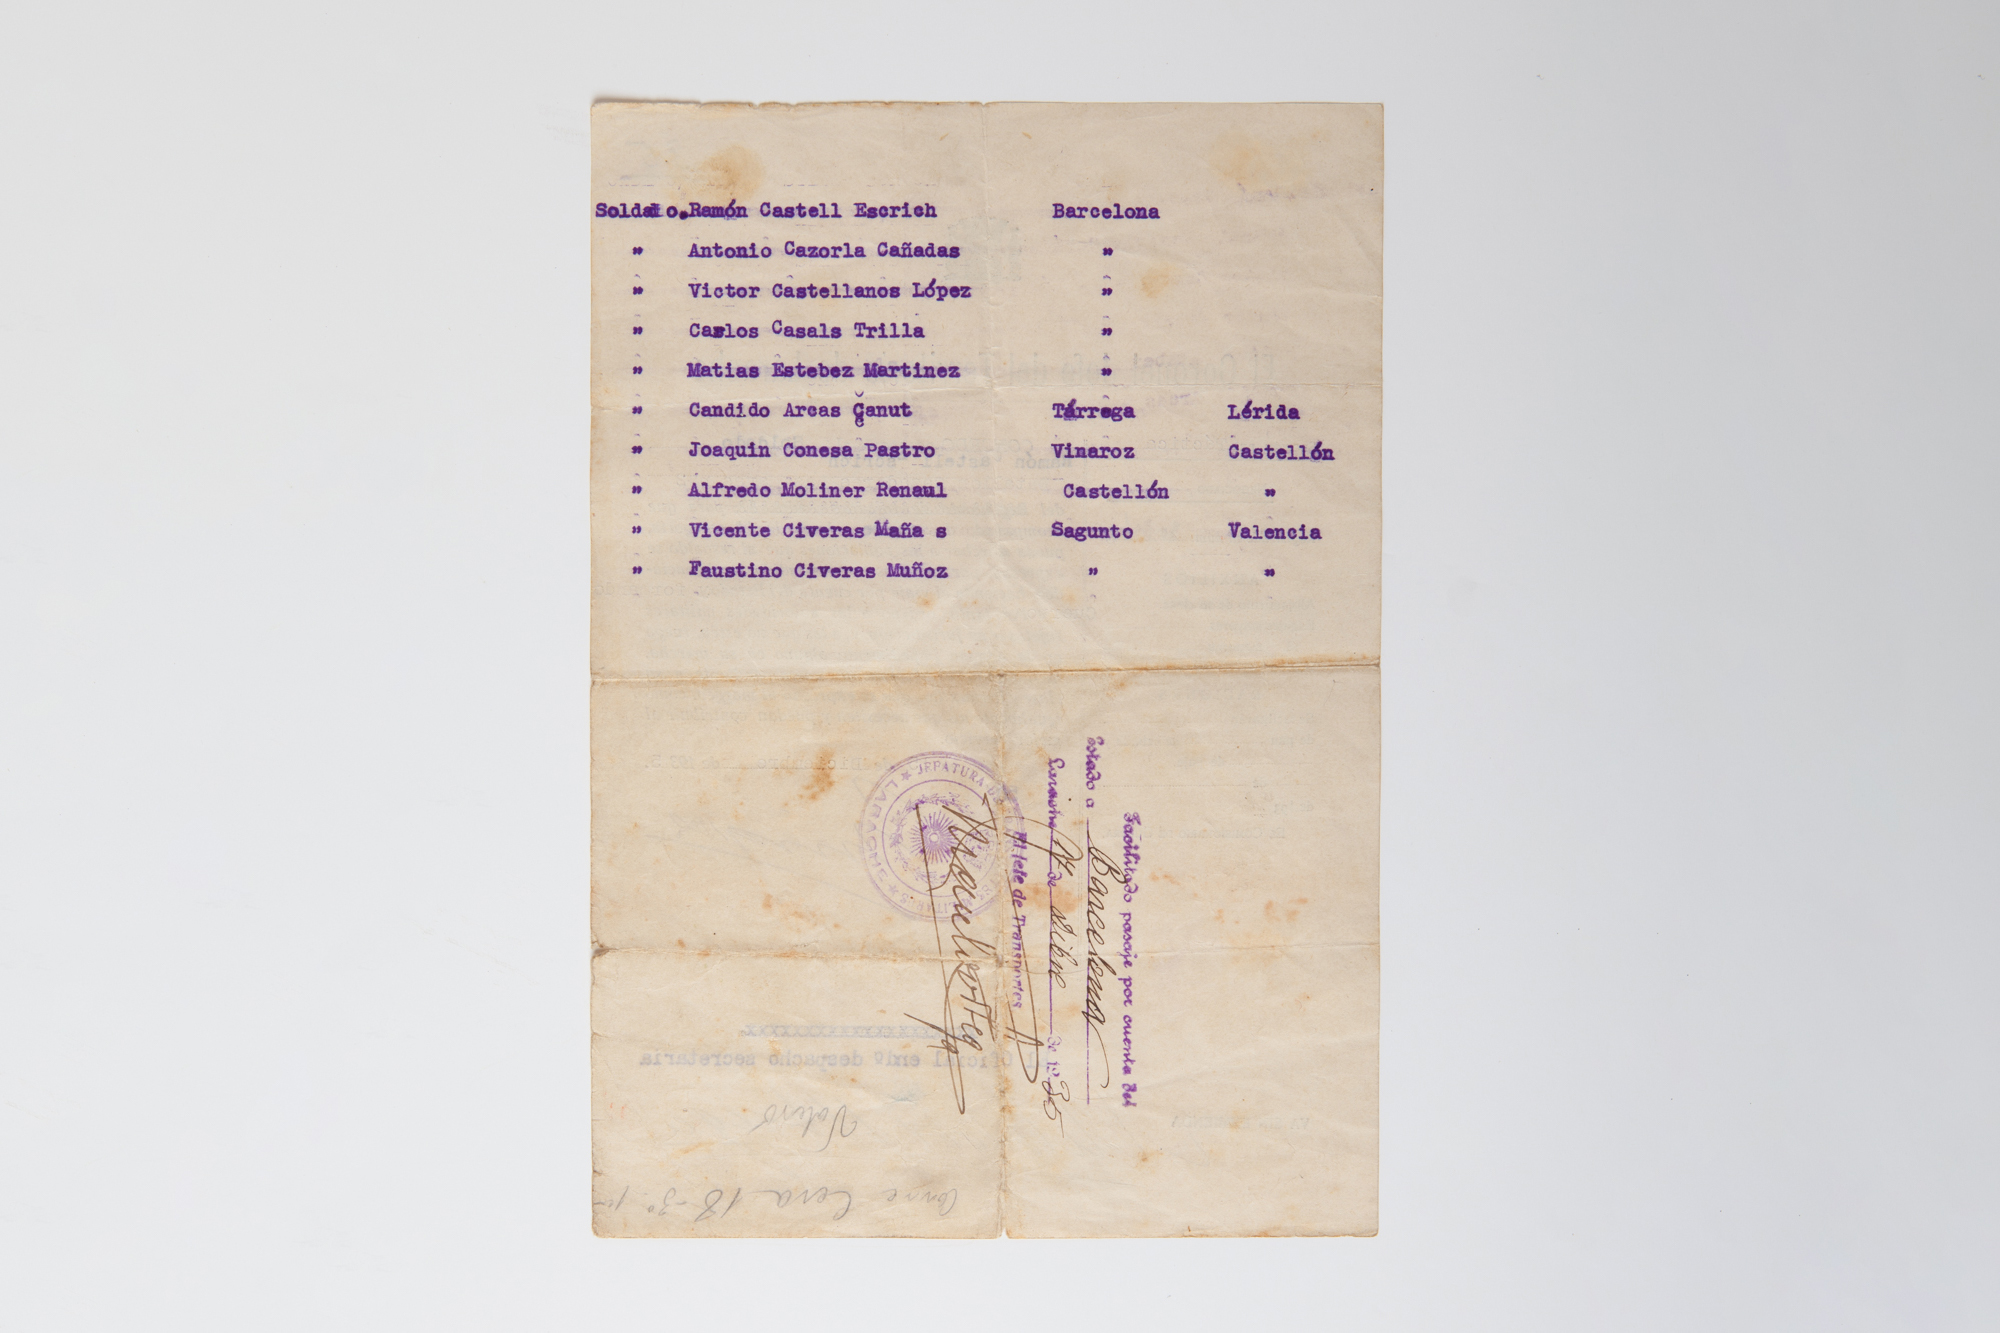 Soldado. Ramón Castell Escrich Barcelona
" Antonio Cazorla Cañadas "
" Victor Castellanos López "
" Carlos Casals Trilla "
" Matias Estebez Martinez "
" Candido Arcas Canut Tárrega Lérida
" Joaquin Conesa Pastro Vinaroz Castellón
" Alfredo Moliner Renaul Castellón "
" Vicente Civeras Maña s Sagunto Valencia
" Faustino Civeras Muñoz " "
Facilitado pasaje por cuenta del
Estado a Barcelona
Larache de Dibre de 1935
El Jefe de Transportes
JEFATURA DE MILITARES
LARACHE